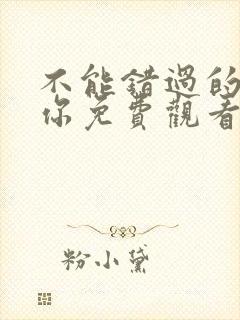 不能錯過的
你免費觀看
粉小黛